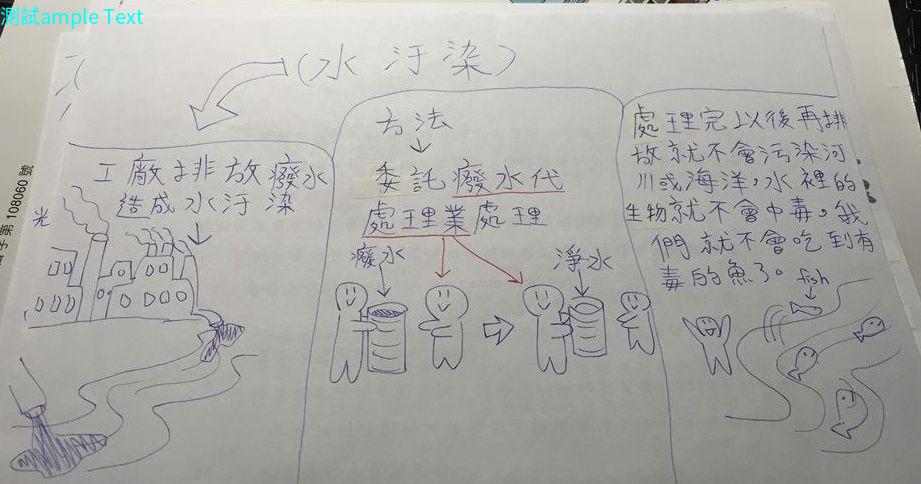 測試ample Text
(水汙染)
工廠排放廢水
造成水汙染
方法
委託廢水代
處理業處理
廢水
淨水
處理完以後再排
放就不會污染河
川或海洋，水裡的
生物就不會中毒，我
們就不會吃到有
毒的魚了。
fish
字第 108060 號